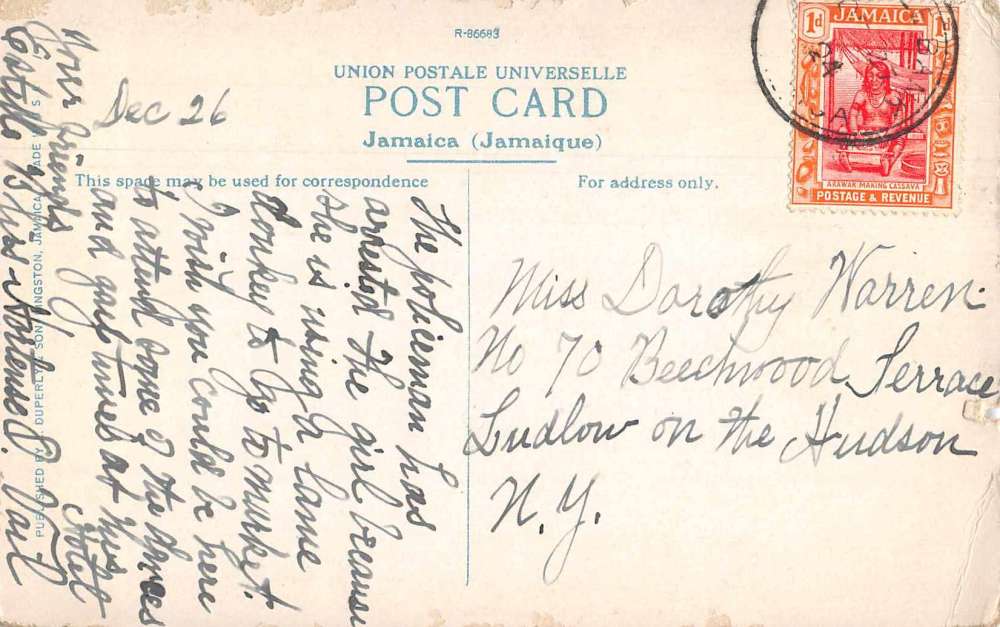 R-86683
UNION POSTALE UNIVERSELLE
POST CARD
Jamaica (Jamaique)
This space may be used for correspondence
For address only.
Dec 26
The policeman has
arrested the girl because
she is using a lame
donkey to go to market.
I wish you could be here
to attend some of the dances
and gay times at this
Hotel
Your friends
Estelle &
Vail
Miss Dorothy Warren
No 70 Beechwood Terrace
Ludlow on the Hudson
N.Y.
PUBLISHED BY A. DUPERLY & SON, KINGSTON, JAMAICA. MADE IN U.S.
1d JAMAICA 1d
ARAWAK MAKING CASSAVA
POSTAGE & REVENUE
24